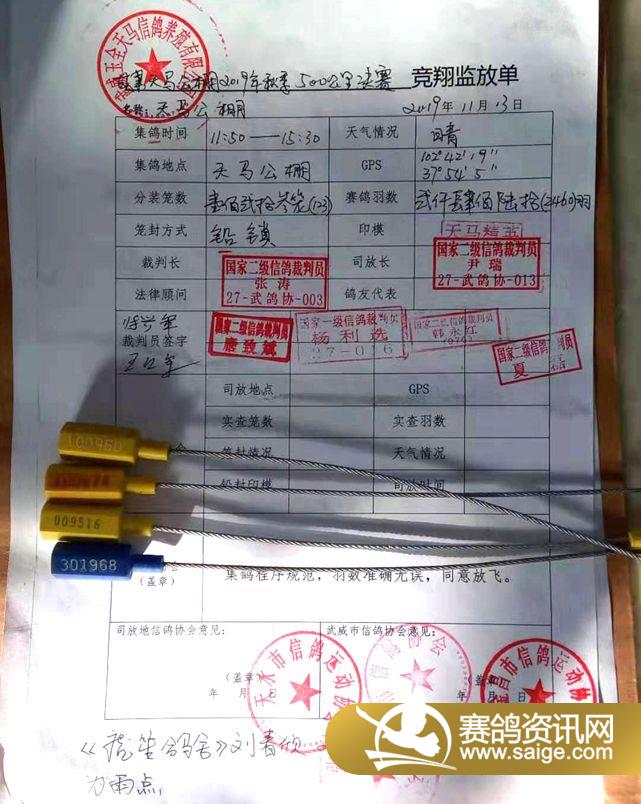 武威天马公棚2019年秋季500公里决赛 竞翔监放单
名称: 天马公棚 2019年11月13日
集鸽时间 11:50——15:30 天气情况 晴
集鸽地点 天马公棚 GPS 102°42′19″ 37°54′5″
分装笼数 壹佰贰拾叁笼(123) 赛鸽羽数 贰仟肆佰陆拾(2460)羽
笼封方式 铅锁 印模 天马精英
裁判长 国家二级信鸽裁判员 张涛 27-武鸽协-003 司放长 国家二级信鸽裁判员 尹瑞 27-武鸽协-013
法律顾问 鸽友代表
裁判员签字
国家二级信鸽裁判员
唐致斌
国家一级信鸽裁判员
杨利选
27-016
韩永红
国家二级信鸽裁判员
夏磊
司放地点 GPS
实查笼数 实查羽数
笼封情况 天气情况
铅封印模 司放时间
100960
009516
301968
(盖章) 集鸽程序规范，羽数准确无误，同意放飞。
司放地信鸽协会意见: 武威市信鸽协会意见:
(盖章) (盖章)
年 月 日 年 月 日
天水市信鸽运动协
市信鸽协会
昌市信鸽运动协
刘春
为雨点,
赛鸽资讯网
www.saige.com